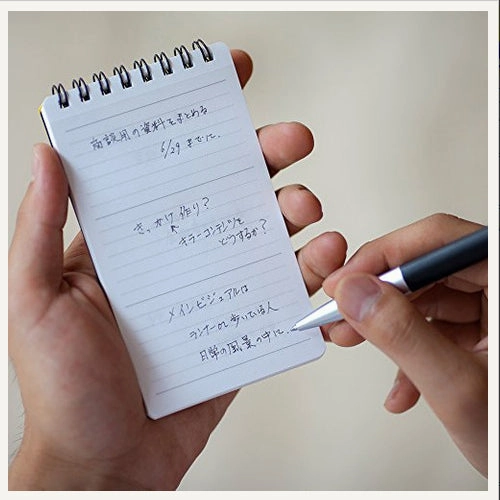 商談用の資料をまとめる
6/29 までに、
きっかけ作り?
キラーコンテンツを
どうするか?
メインビジュアルは
ランナーかで歩いている人
日常の風景の中に、